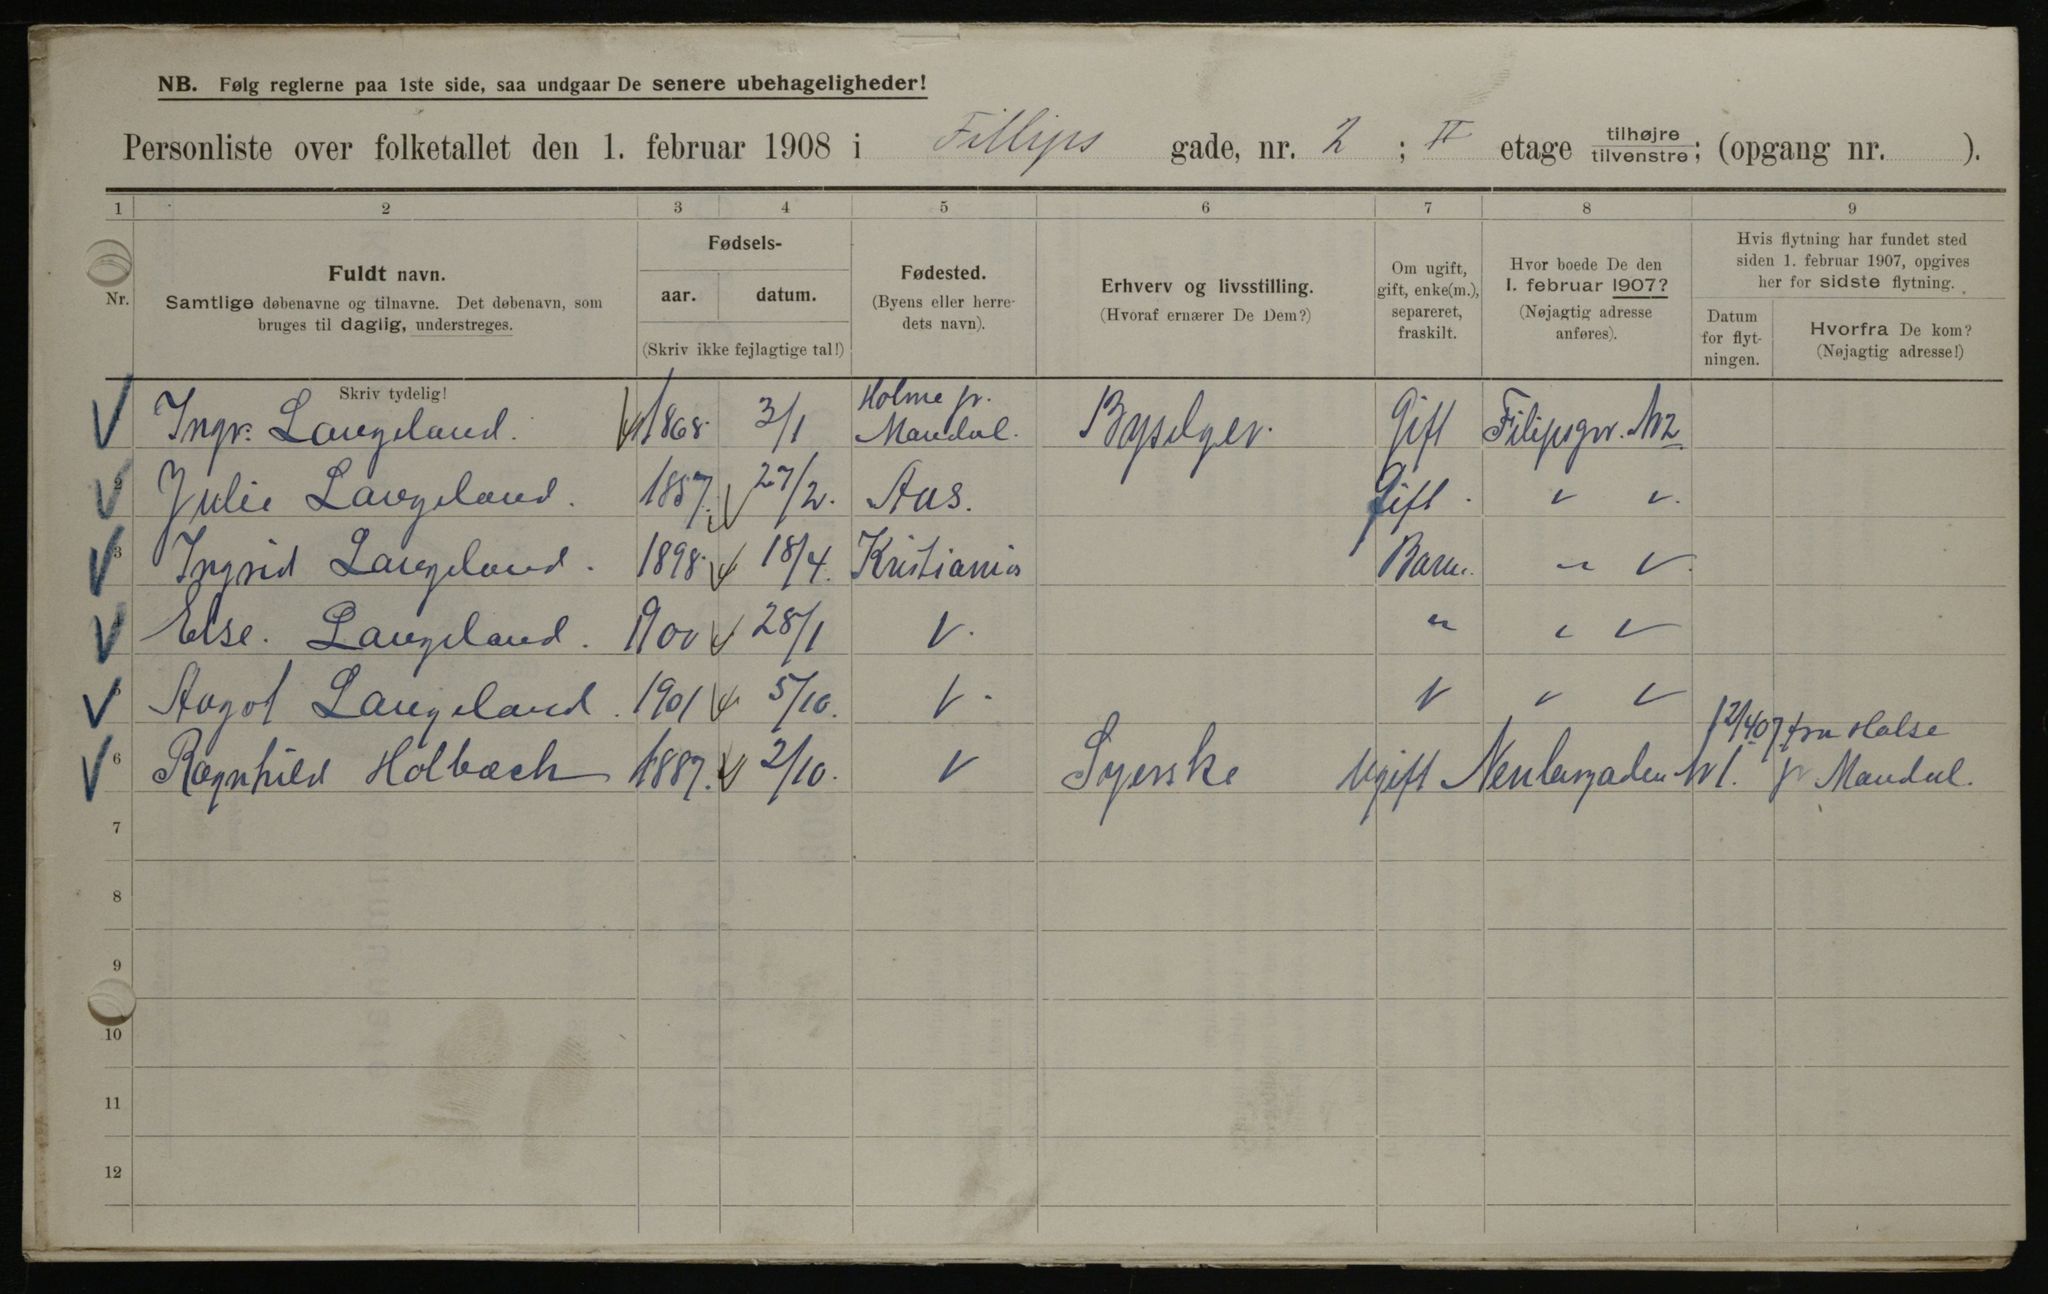 NB. Følg reglerne paa 1ste side, saa undgaar De senere ubehageligheder!
Personliste over folketallet den 1. februar 1908 i Fillips gade, nr. 2 ; II etage tilhøjre/tilvenstre; (opgang nr. ).
1 2 3 4 5 6 7 8 9
Nr.
Fuldt navn.
Samtlige døbenavne og tilnavne. Det døbenavn, som
bruges til daglig, understreges.
Skriv tydelig!
Fødsels-
aar. datum.
(Skriv ikke fejlagtige tal!)
Fødested.
(Byens eller herre-
dets navn).
Erhverv og livsstilling.
(Hvoraf ernærer De Dem?)
Om ugift,
gift, enke(m.),
separeret,
fraskilt.
Hvor boede De den
1. februar 1907?
(Nøjagtig adresse
anføres).
Hvis flytning har fundet sted
siden 1. februar 1907, opgives
her for sidste flytning.
Datum
for flyt-
ningen.
Hvorfra De kom?
(Nøjagtig adresse!)
Ingv. Langeland. 1868. 3/1 Holme pr. Mandal. Byselger. Gift Filipsgr. N2
2 Julie Langeland. 1857. 27/2. Aas. Gift. " "
3 Ingrid Langeland. 1898. 18/4. Kristiania Barn. " "
Else. Langeland. 1900 28/1 " " " "
5 Aagot Langeland. 1901 5/10. " " " "
6 Ragnhild Holbæch 1887. 2/10. " Syerske Ugift N1. 12/4 07 fra Halse pr Mandal.
7
8
9
10
11
12